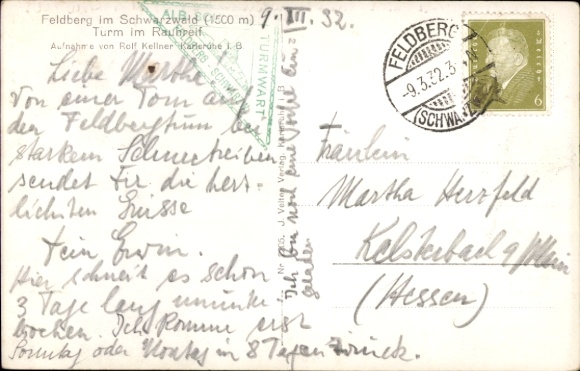 Feldberg im Schwarzwald (1500 m)
Turm im Rauhreif
Aufnahme von Rolf Kellner Karlsruhe i. B.
9. III. 32.
TURMWART
FELDBERG
-9.3.32.3
(SCHWA
6
Liebe Martha!
Von einer Tour auf
den Feldbergturm bei
starkem Schneetreiben
sendet Dir die herz
lichsten Grüsse
Dein Erwin.
Hier schneit es schon
3 Tage lang ununter
brochen. Ich komme erst
Sonntag oder Montag in 8 Tagen zurück.
Ich bin noch eine Woche ein=
geladen
J. Velten Verlag, Karlsruhe i. B.
Fräulein
Martha Herzfeld
Kelsterbach a/Main
(Hessen)